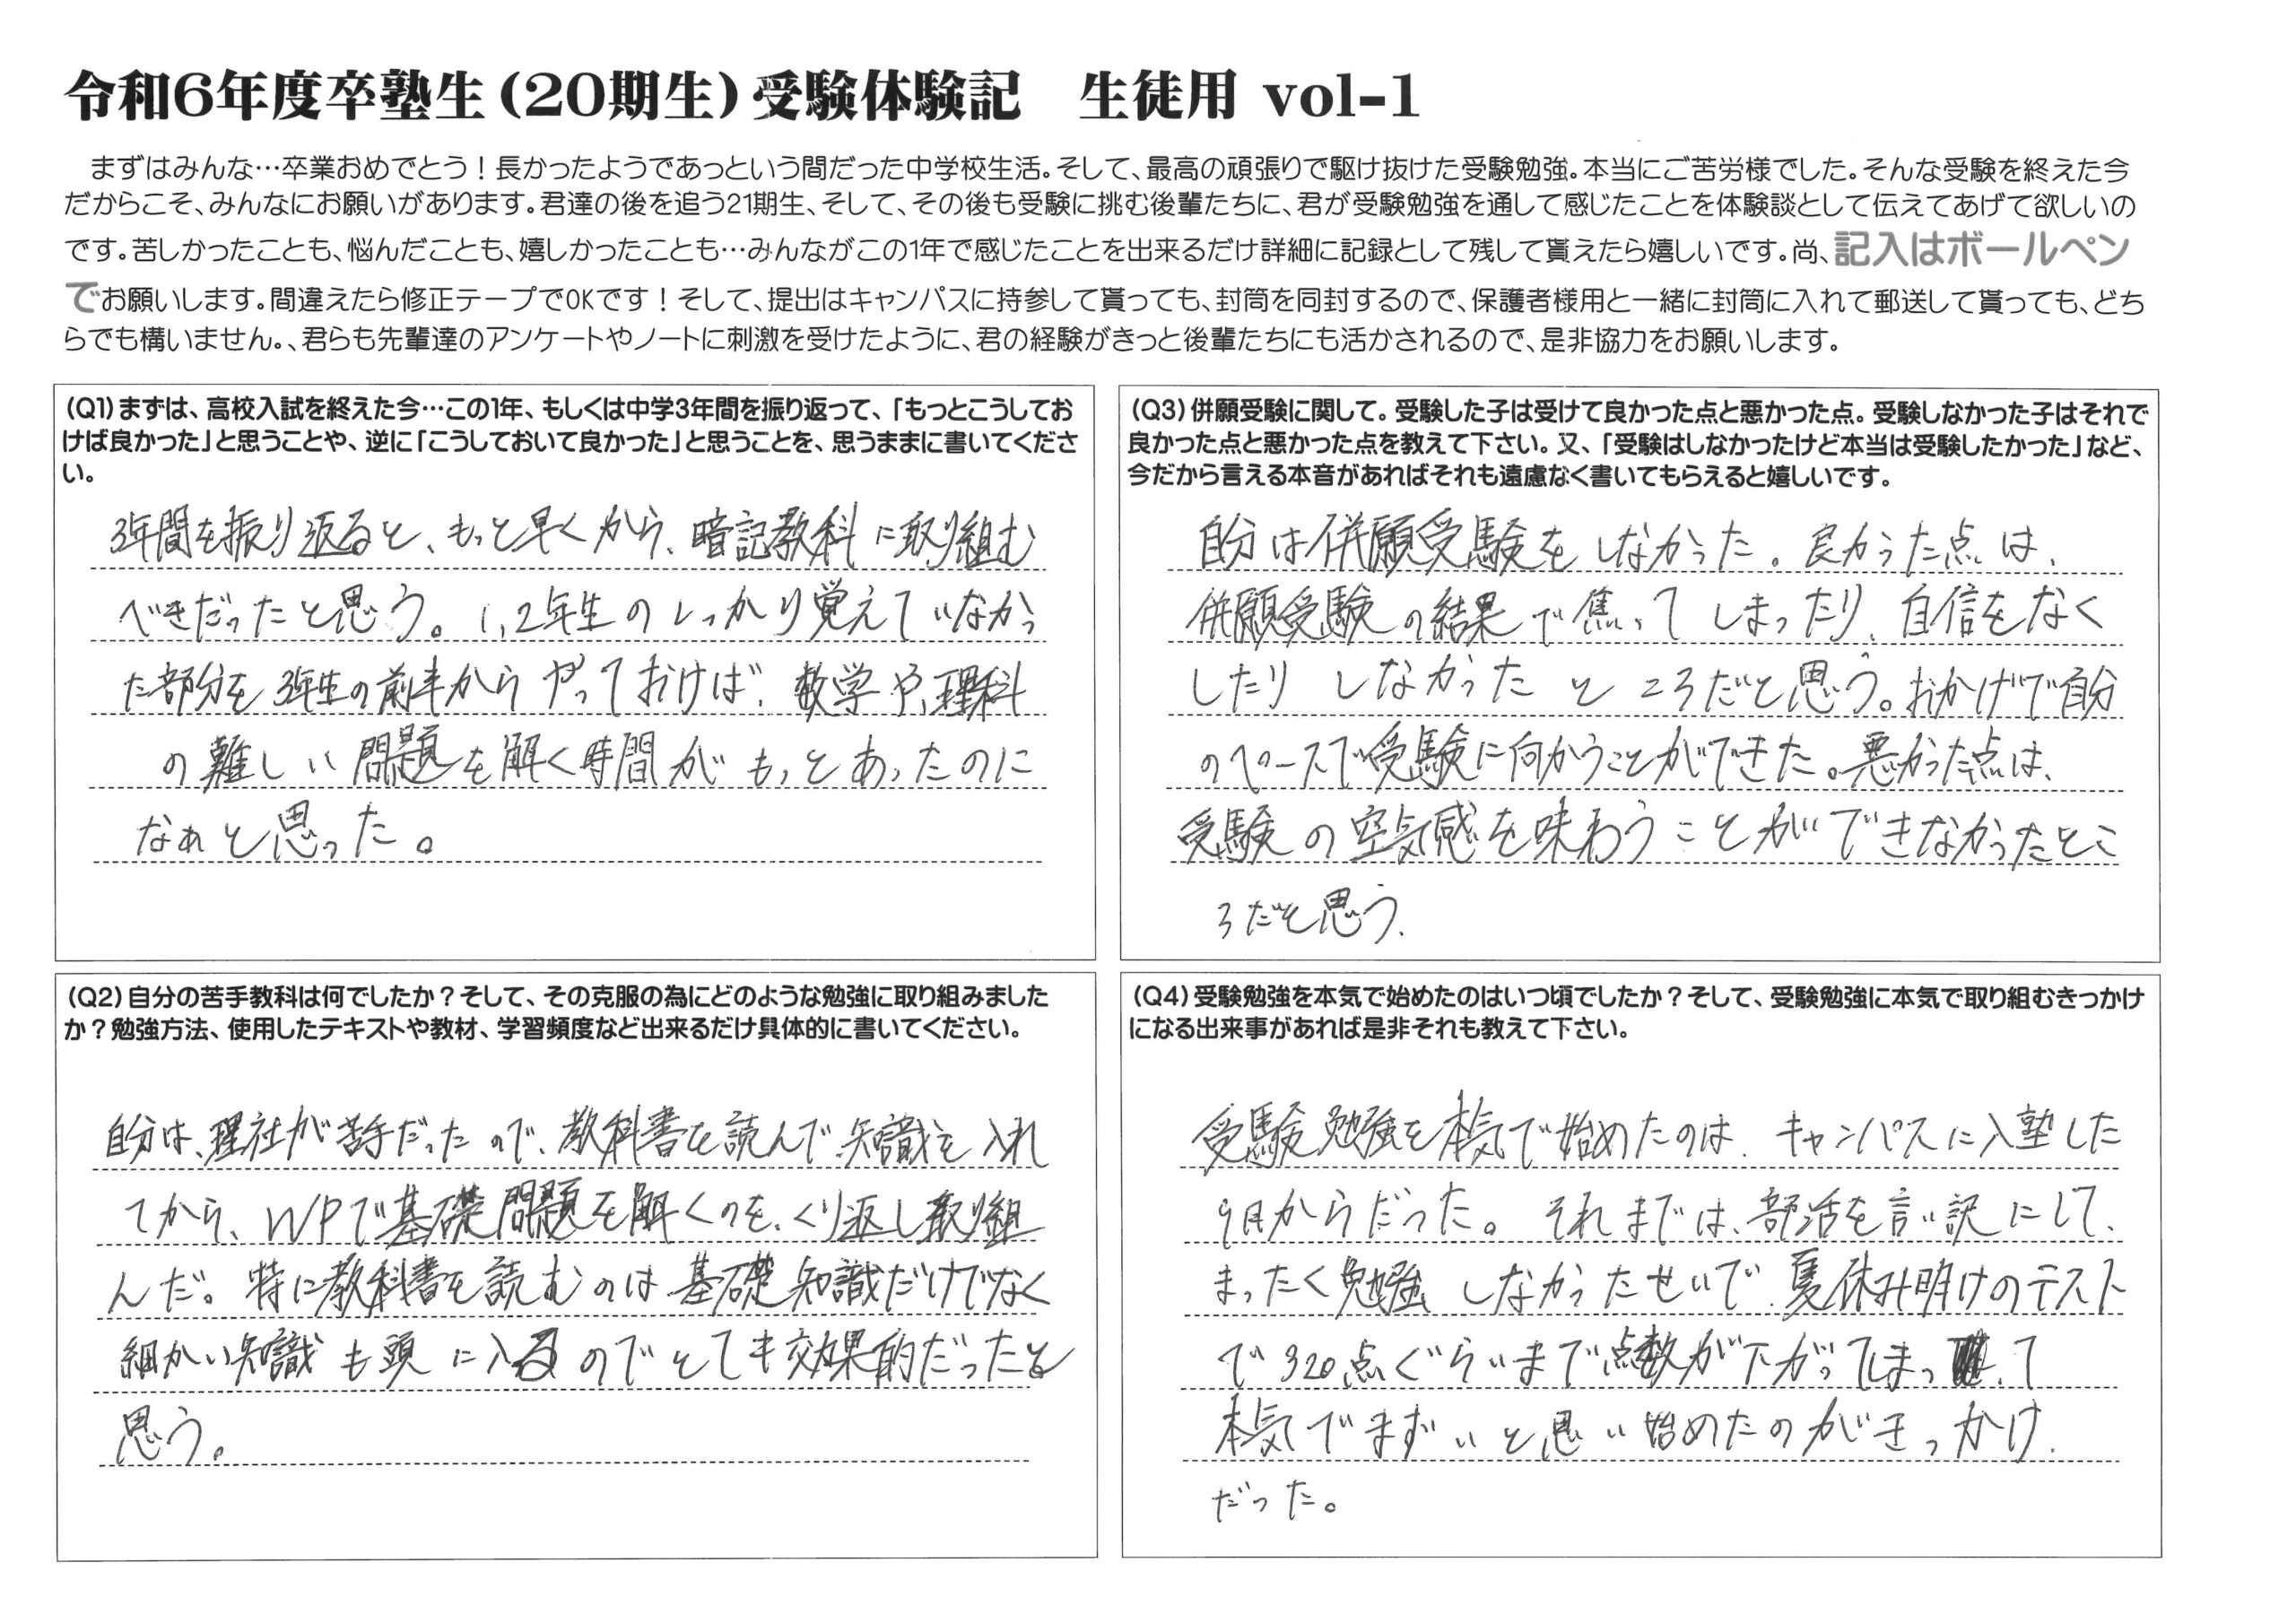 令和6年度卒塾生(20期生)受験体験記　生徒用 vol-1
まずはみんな…卒業おめでとう!長かったようであっという間だった中学校生活。そして、最高の頑張りで駆け抜けた受験勉強。本当にご苦労様でした。そんな受験を終えた今
だからこそ、みんなにお願いがあります。君達の後を追う21期生、そして、その後も受験に挑む後輩たちに、君が受験勉強を通して感じたことを体験談として伝えてあげて欲しいの
です。苦しかったことも、悩んだことも、嬉しかったことも…みんながこの1年で感じたことを出来るだけ詳細に記録として残して貰えたら嬉しいです。尚、記入はボールペン
でお願いします。間違えたら修正テープでOKです!そして、提出はキャンパスに持参して貰っても、封筒を同封するので、保護者様用と一緒に封筒に入れて郵送して貰っても、どち
らでも構いません。、君らも先輩達のアンケートやノートに刺激を受けたように、君の経験がきっと後輩たちにも活かされるので、是非協力をお願いします。
(Q1)まずは、高校入試を終えた今…この1年、もしくは中学3年間を振り返って、「もっとこうしてお
けば良かった」と思うことや、逆に「こうしておいて良かった」と思うことを、思うままに書いてくださ
い。
3年間を振り返ると、もっと早くから、暗記教科に取り組む
べきだったと思う。1,2年生のしっかり覚えていなかっ
た部分を3年生の前半からやっておけば、数学や、理科
の難しい問題を解く時間がもっとあったのに
なぁと思った。
(Q2)自分の苦手教科は何でしたか?そして、その克服の為にどのような勉強に取り組みました
か?勉強方法、使用したテキストや教材、学習頻度など出来るだけ具体的に書いてください。
自分は、理社が苦手だったので、教科書を読んで知識を入れ
てから、WPで基礎問題を解くのを、くり返し取り組
んだ。特に教科書を読むのは基礎知識だけでなく
細かい知識も頭に入るのでとても効果的だったと
思う。
(Q3)併願受験に関して。受験した子は受けて良かった点と悪かった点。受験しなかった子はそれで
良かった点と悪かった点を教えて下さい。又、「受験はしなかったけど本当は受験したかった」など、
今だから言える本音があればそれも遠慮なく書いてもらえると嬉しいです。
自分は併願受験をしなかった。良かった点は、
併願受験の結果で焦ってしまったり、自信をなく
したりしなかったところだと思う。おかげで自分
のペースで受験に向かうことができた。悪かった点は、
受験の空気感を味わうことができなかったとこ
ろだと思う.
(Q4)受験勉強を本気で始めたのはいつ頃でしたか?そして、受験勉強に本気で取り組むきっかけ
になる出来事があれば是非それも教えて下さい。
受験勉強を本気で始めたのは、キャンパスに入塾した
9月からだった。それまでは、部活を言い訳にして、
まったく勉強しなかったせいで、夏休み明けのテスト
で320点ぐらいまで点数が下がってしまって
本気でまずいと思い始めたのがきっかけ
だった。